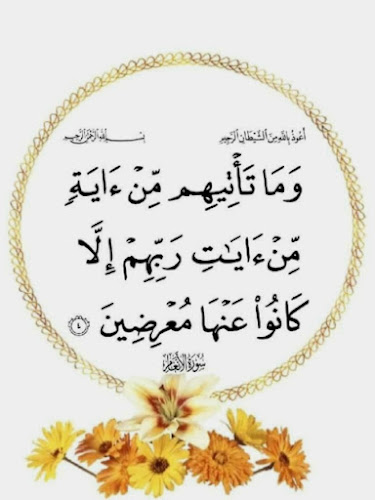 أعوذ بالله من الشيطان الرجيم
بسم الله الرحمن الرحيم
وَمَا تَأْتِيهِم مِّنْ ءَايَةٍ
مِّنْ ءَايَٰتِ رَبِّهِمْ إِلَّا
كَانُوا۟ عَنْهَا مُعْرِضِينَ ٤
سورة الأنعام